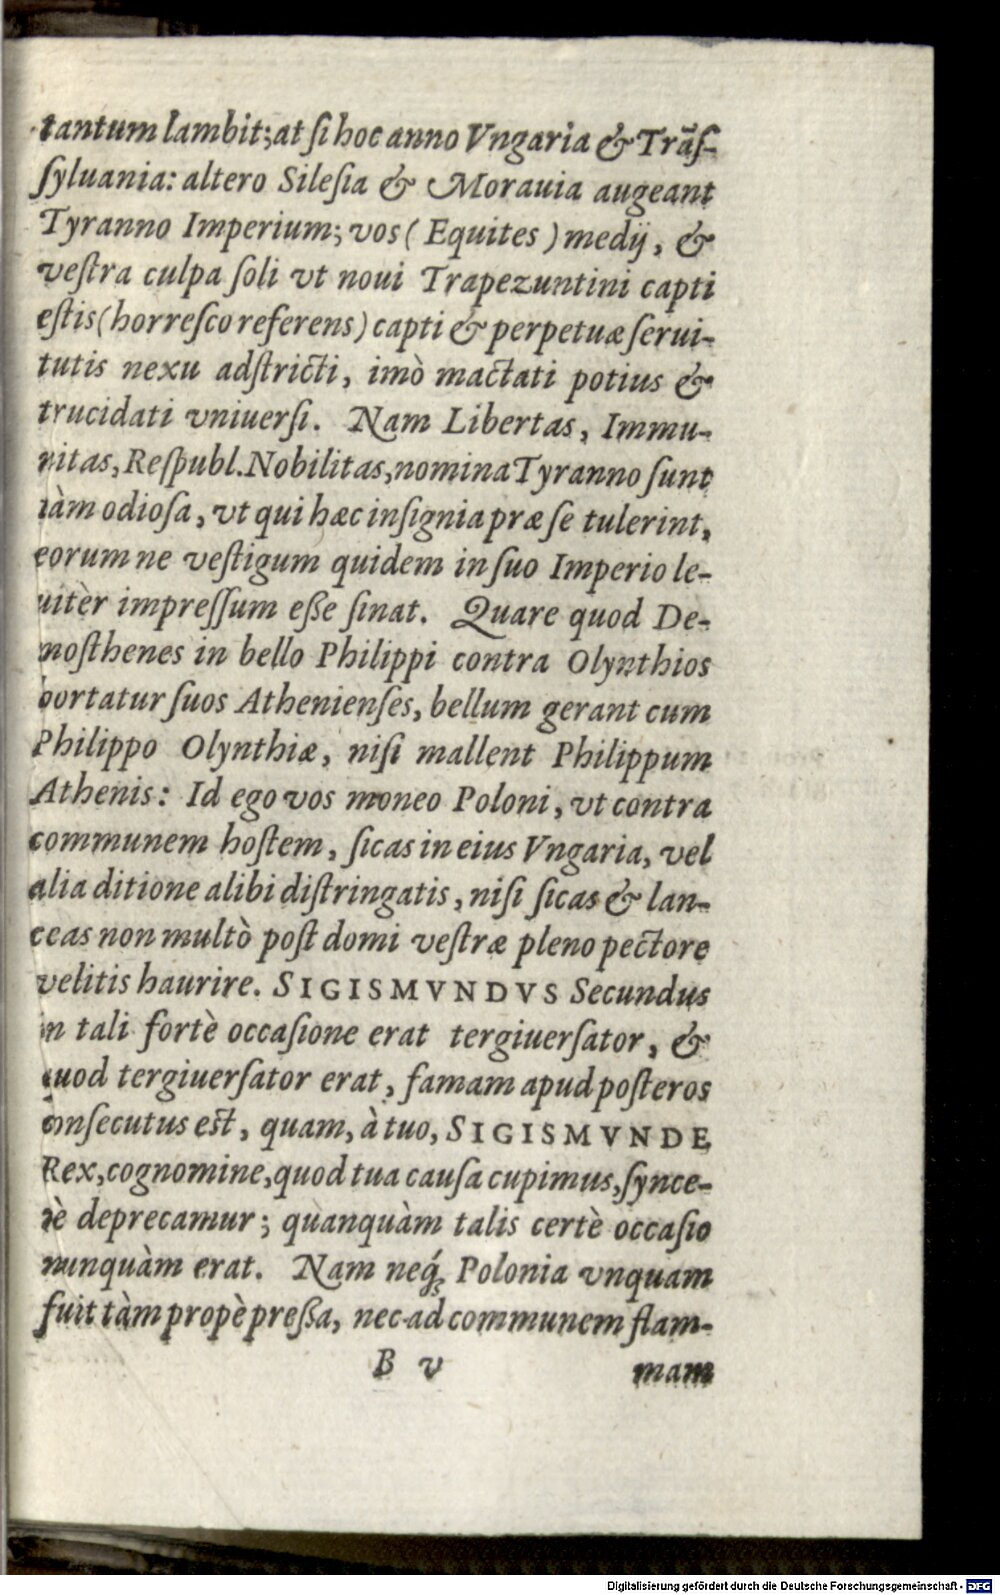 tantum lambit; at ſi hoc anno Vngaria & Trãſ-
ſyluania: altero Sileſia & Morauia augeant
Tyranno Imperium; vos ( Equites ) medij, &
veſtra culpa ſoli vt noui Trapezuntini capti
eſtis (horreſco referens) capti & perpetuæ ſerui-
tutis nexu adſtricti, imò mactati potius &
trucidati vniuerſi. Nam Libertas, Immu-
nitas, Reſpubl. Nobilitas, nomina Tyranno ſunt
iàm odioſa, vt qui hæc inſignia præ ſe tulerint,
eorum ne veſtigum quidem in ſuo Imperio le-
uitèr impreſſum eße ſinat. Quare quod De-
moſthenes in bello Philippi contra Olynthios
hortatur ſuos Athenienſes, bellum gerant cum
Philippo Olynthiæ, niſi mallent Philippum
Athenis: Id ego vos moneo Poloni, vt contra
communem hoſtem, ſicas in eius Vngaria, vel
alia ditione alibi diſtringatis, niſi ſicas & lan-
ceas non multò poſt domi veſtræ pleno pectore
velitis haurire. SIGISMVNDVS Secundus
in tali fortè occaſione erat tergiuerſator, &
quod tergiuerſator erat, famam apud poſteros
conſecutus eſt, quam, à tuo, SIGISMVNDE
Rex, cognomine, quod tua cauſa cupimus, ſynce-
rè deprecamur; quanquàm talis certè occaſio
nunquàm erat. Nam neq́; Polonia vnquam
fuit tàm propè preßa, nec ad communem flam-
B v mam
Digitalisierung gefördert durch die Deutsche Forschungsgemeinschaft - DFG